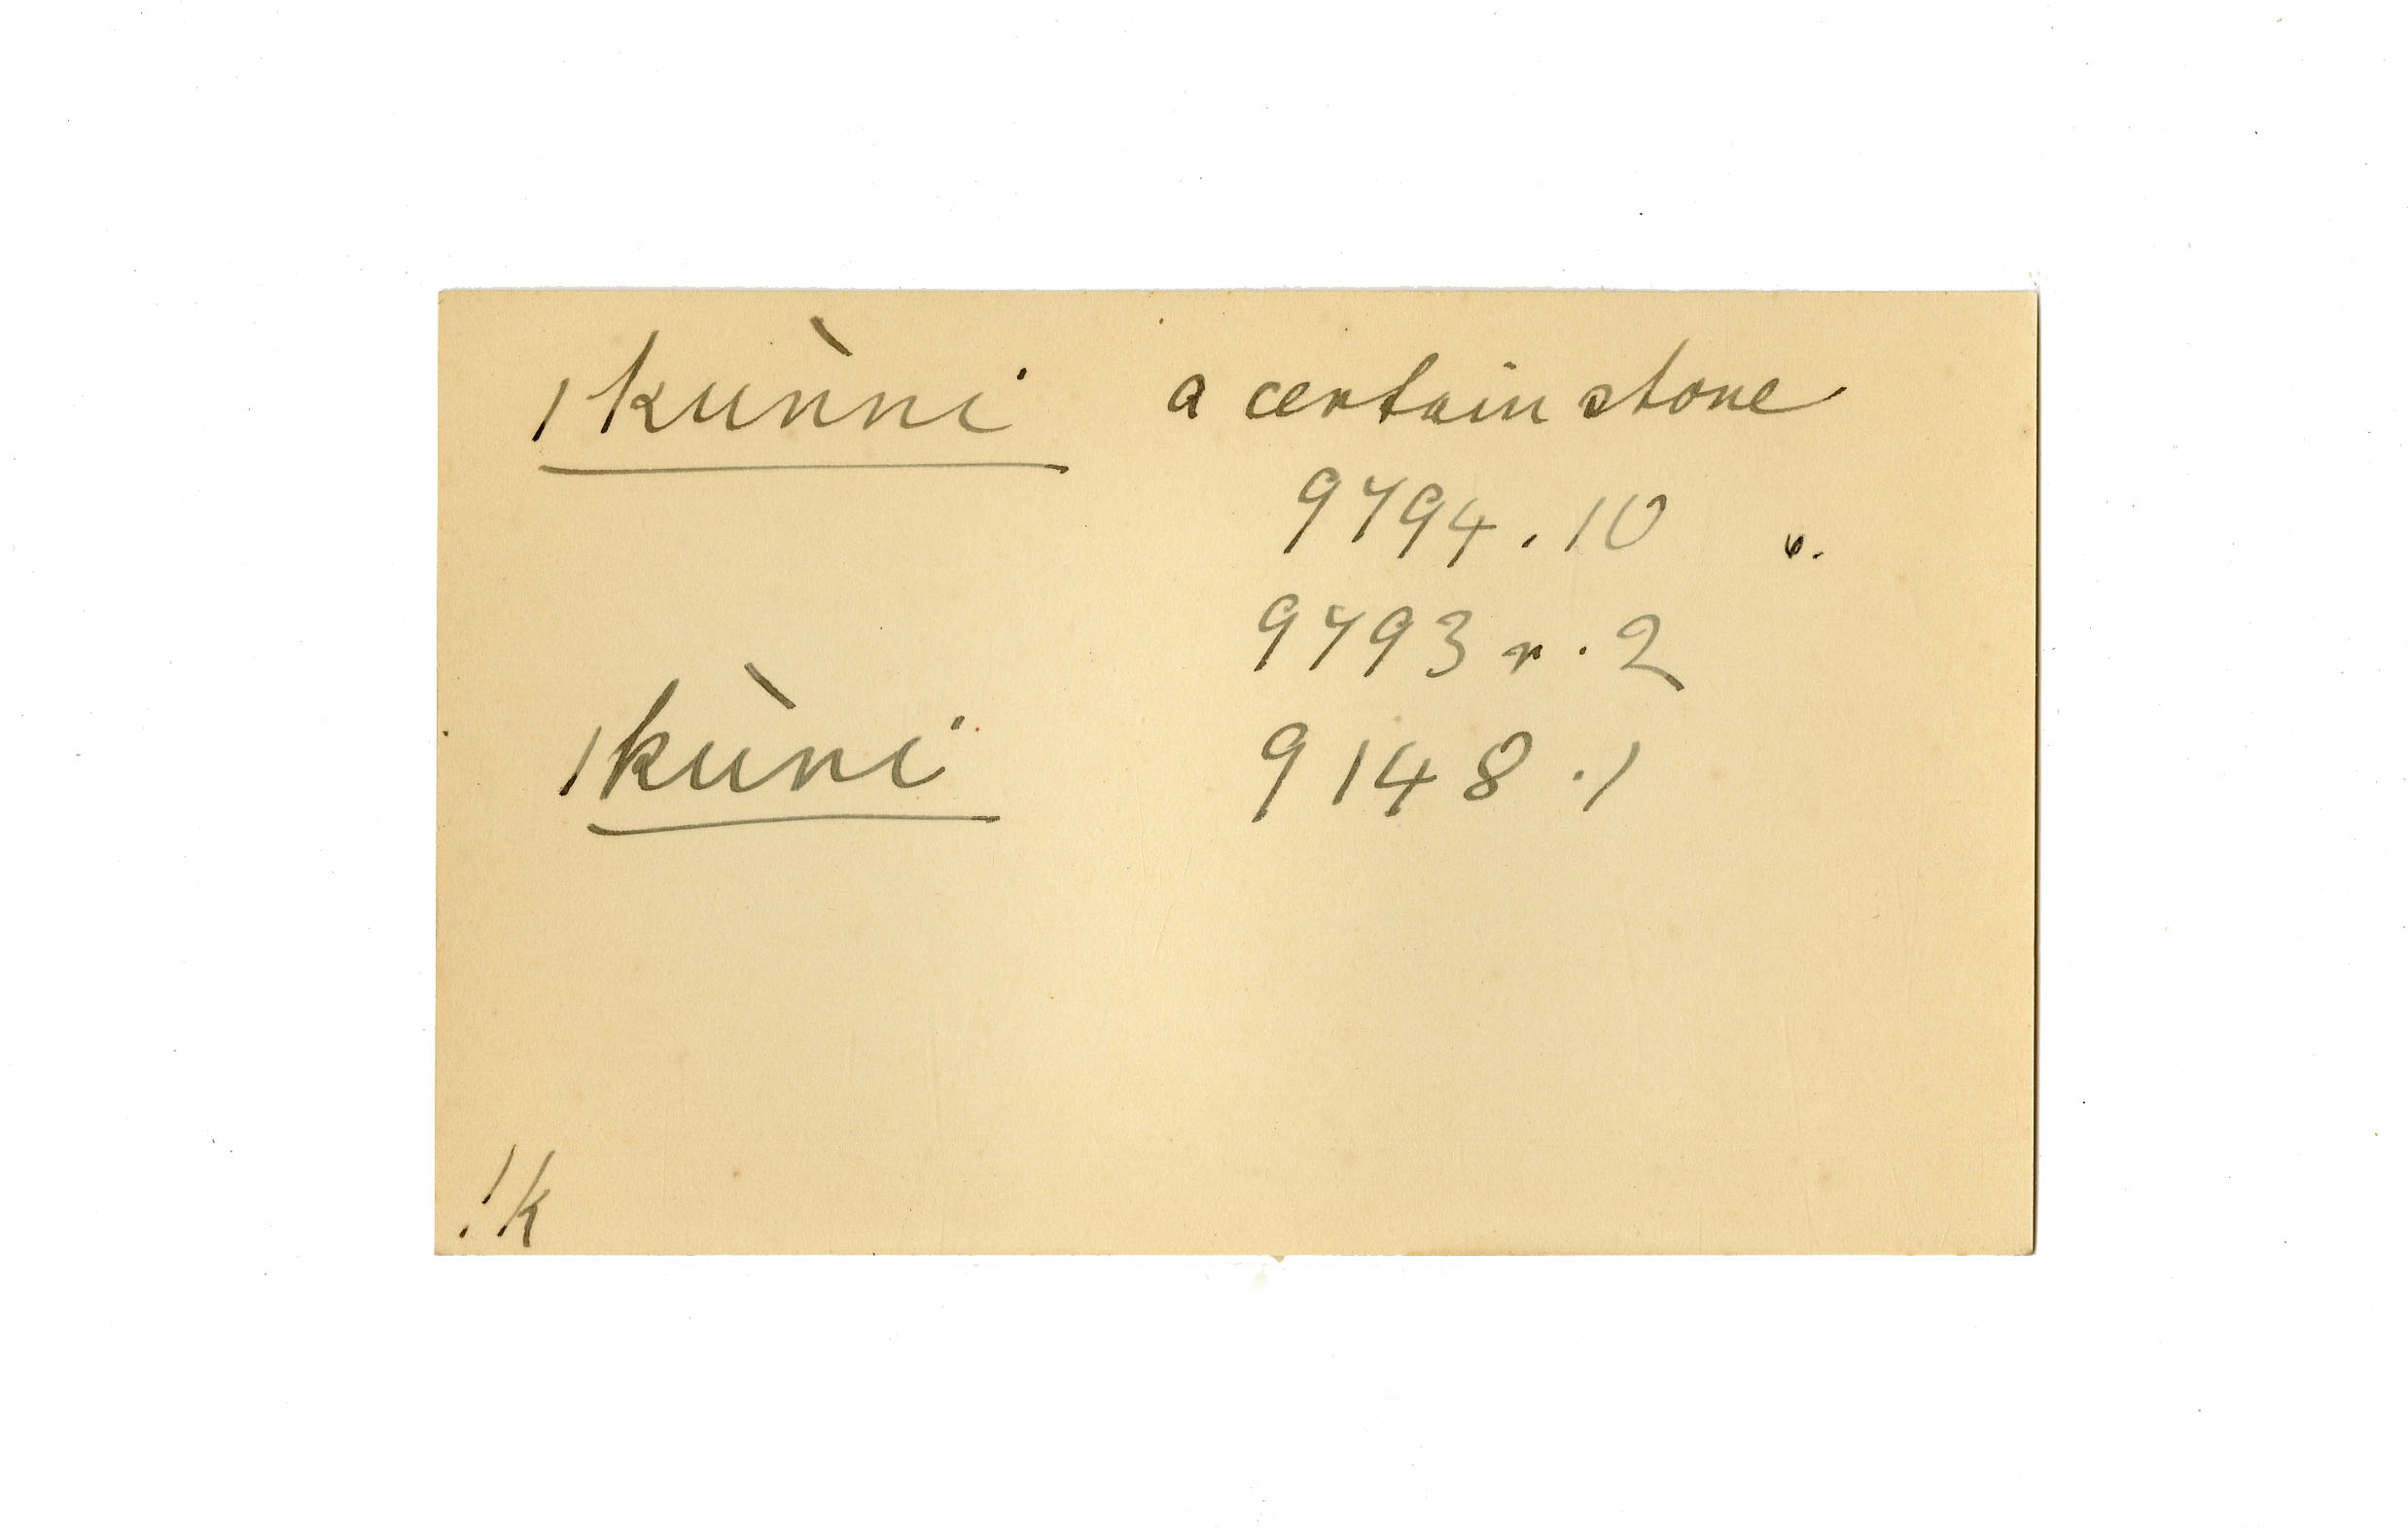 ǀkùnni a certain stone
9794.10
9793 r. 2
ǀkùni 9148.1
!k